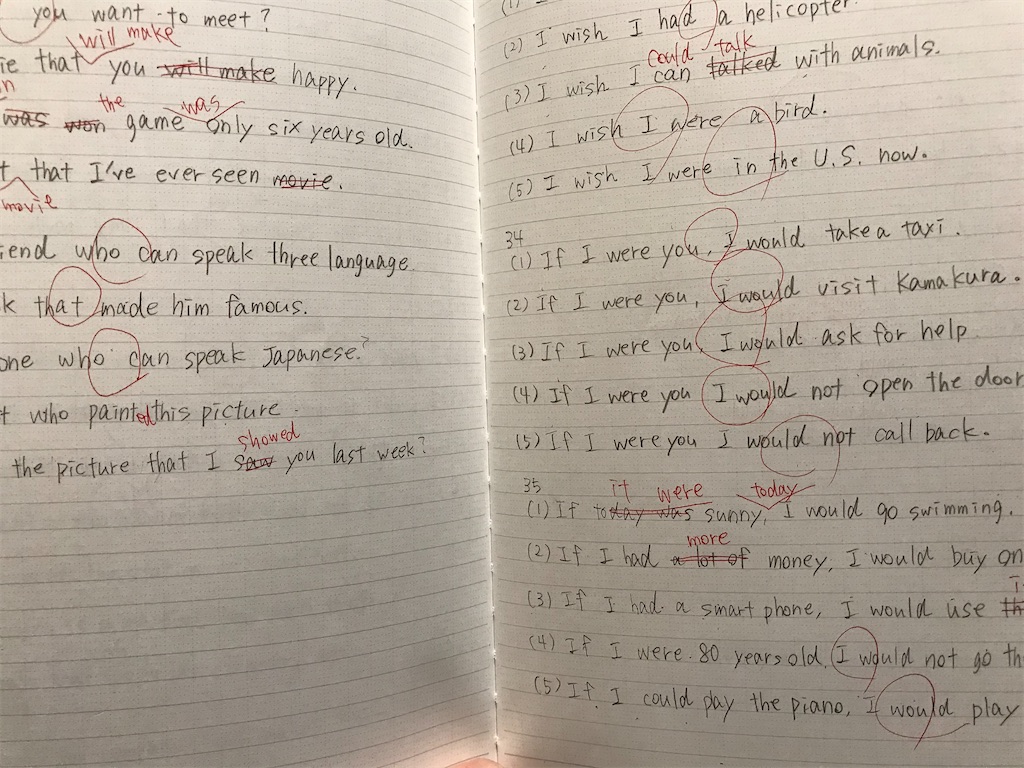 you want to meet?
will make
ie that you will make happy.
in the was
was won game only six years old.
t that I've ever seen movie.
movie
iend who can speak three language
k that made him famous.
one who can speak Japanese?
t who painted this picture.
showed
the picture that I saw you last week?
(1)
(2) I wish I had a helicopter.
could talk
(3) I wish I can talked with animals.
(4) I wish I were a bird.
(5) I wish I were in the U.S. now.
34
(1) If I were you, I would take a taxi.
(2) If I were you, I would visit Kamakura.
(3) If I were you, I would ask for help.
(4) If I were you I would not open the door
(5) If I were you I would not call back.
35
it were today
(1) If today was sunny, I would go swimming.
more
(2) If I had a lot of money, I would buy on
(3) If I had a smart phone, I would use
(4) If I were 80 years old, I would not go th
(5) If I could pay the piano, I would play